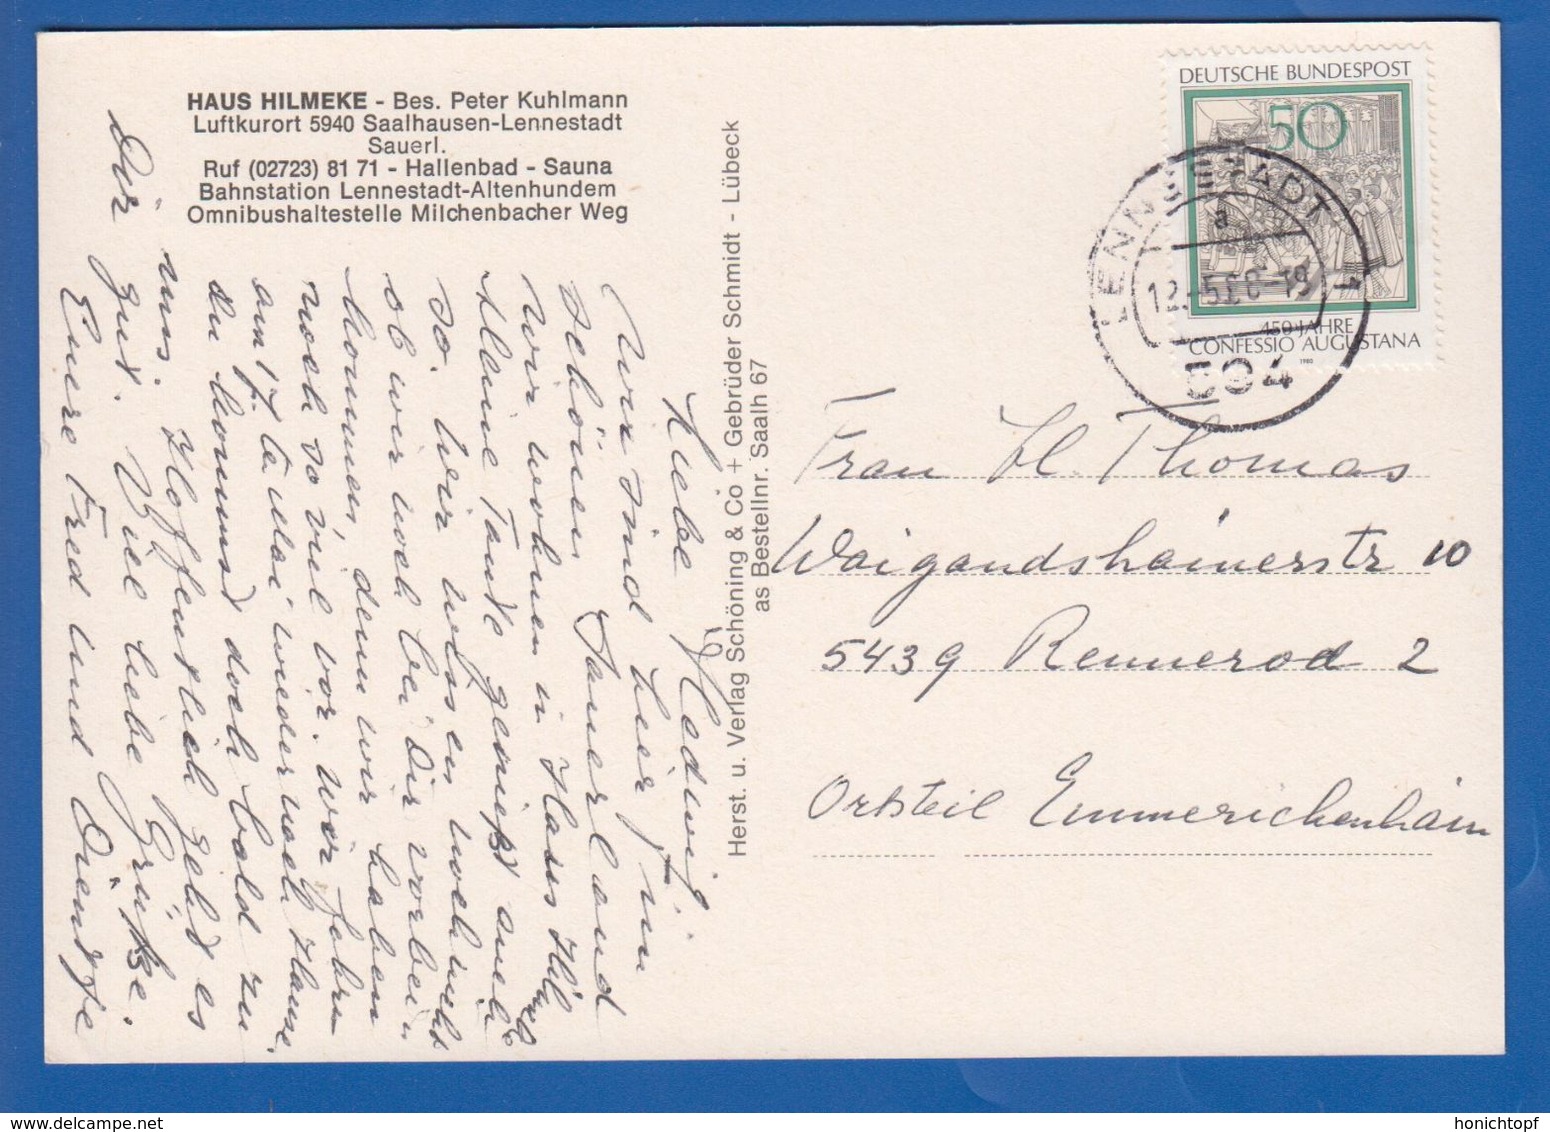 HAUS HILMEKE - Bes. Peter Kuhlmann
Luftkurort 5940 Saalhausen-Lennestadt
Sauerl.
Ruf (02723) 81 71 - Hallenbad - Sauna
Bahnstation Lennestadt-Altenhundem
Omnibushaltestelle Milchenbacher Weg
Liebe Hedwig,
Wir sind hier im
schönen Sauerland
Wir wohnen in Haus Hil
meke
Meine Tante genießt auch
so. Wir wissen noch nicht
ob wir noch bei Dir vorbei
kommen, denn wir haben
noch so viel vor. Wir fahren
am 17. te Mai wieder nach Hause.
du kommst doch bald zu
uns. Hoffentlich geht es
Dir gut. Viel liebe Grüße.
Eure Fred und
Herst. u. Verlag Schöning & Co + Gebrüder Schmidt - Lübeck
as Bestellnr. Saalh 67
DEUTSCHE BUNDESPOST
50
450 JAHRE
CONFESSIO AUGUSTANA
1980
LENNESTADT 1
a
12.-5.80-19
594
Frau H. Thomas
Waigandshainerstr 10
5439 Rennerod 2
Ortsteil Emmerichenhain
honichtopf